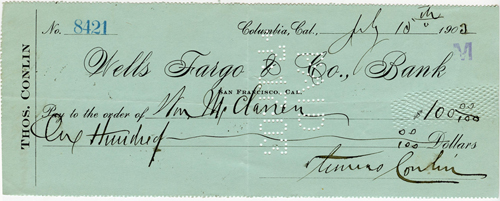 No. 8421 Columbia, Cal., July 10th 190
M
Wells Fargo & Co., Bank
San Francisco, Cal.
Pay to the order of Wm McClarren $100 00/100
One Hundred 00/100 Dollars
Thomas Conlin
THOS. CONLIN